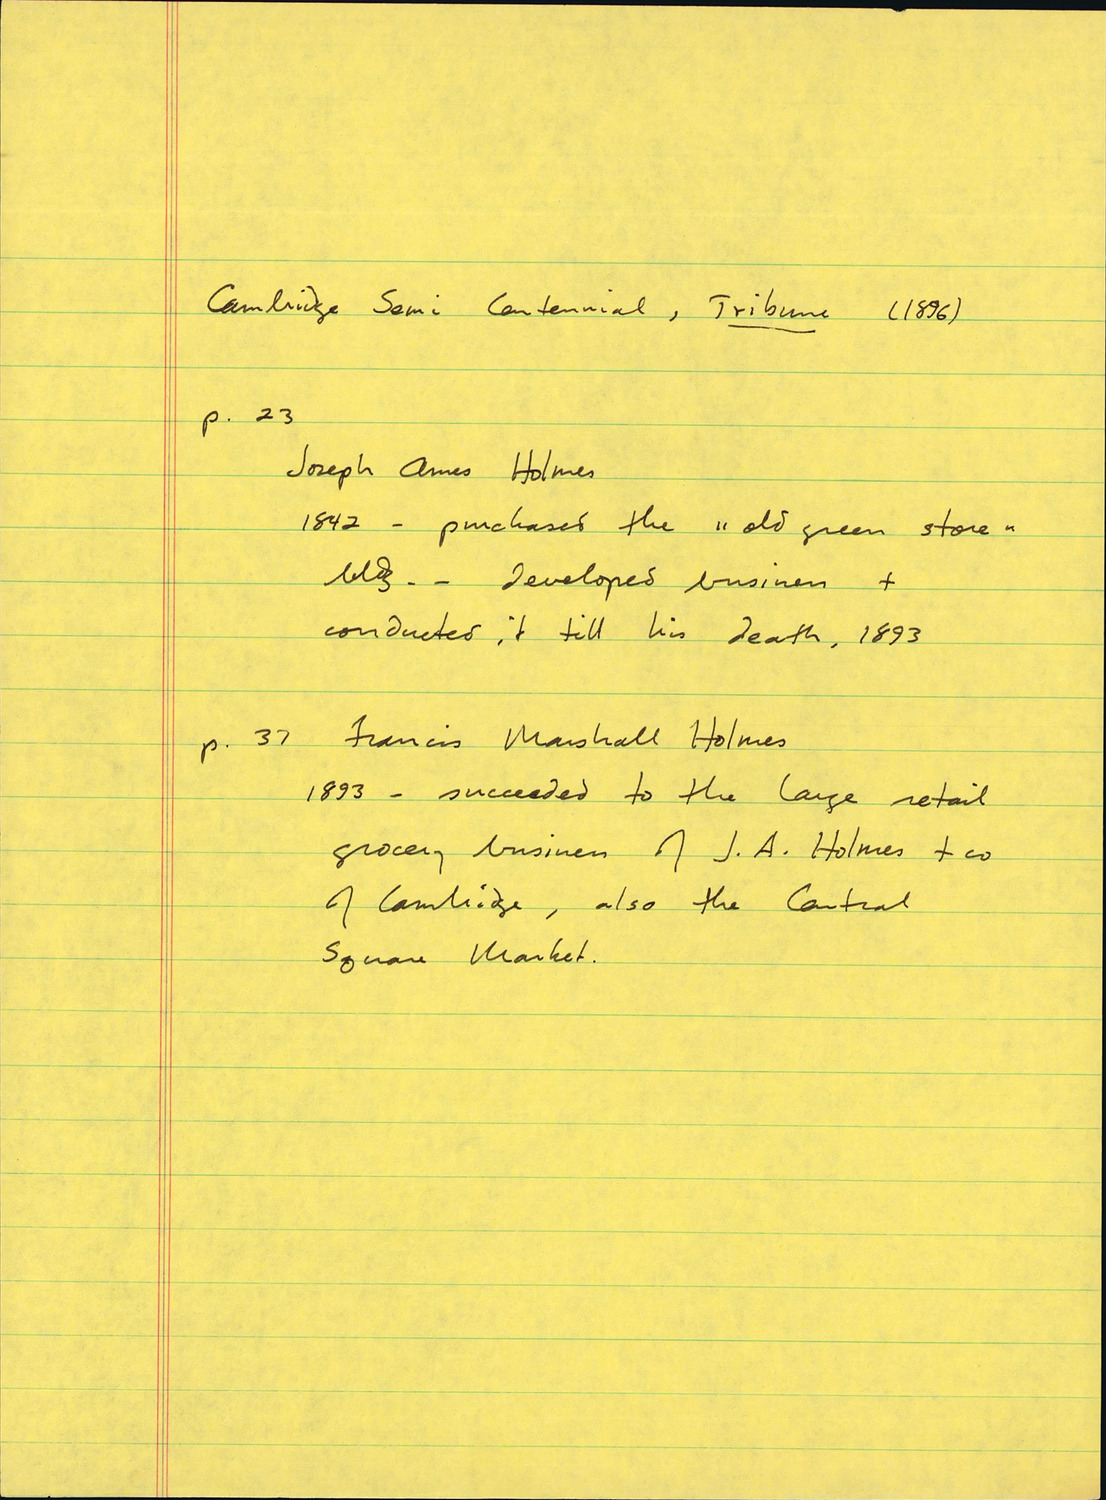 Cambridge Semi Centennial, Tribune (1896)
p. 23
Joseph Ames Holmes
1842 - purchased the "old green store"
bldg. - developed business +
conducted it till his death, 1893
p. 37 Francis Marshall Holmes
1893 - succeeded to the large retail
grocery business of J. A. Holmes + co
of Cambridge, also the Central
Square Market.